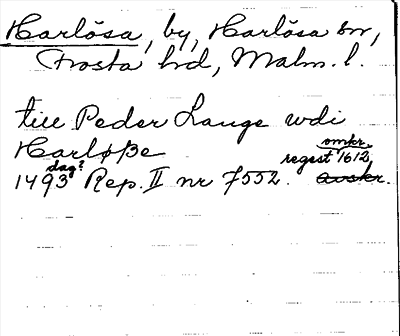 Harlösa, by, Harlösa sn,
Frosta hd, Malm. l.
till Peder Lauge wdi
Harløße omkr.
dag? regest 1612
1493 Rep. II nr 7552. avskr.